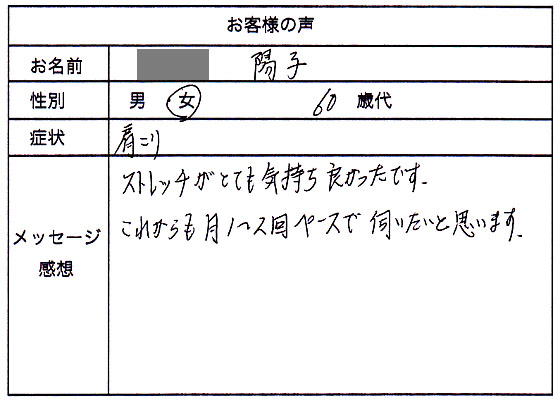 お客様の声
お名前 陽子
性別 男 女 60 歳代
症状 肩こり
メッセージ
感想
ストレッチがとても気持ち良かったです。
これからも月1〜2回ペースで伺いたいと思います。